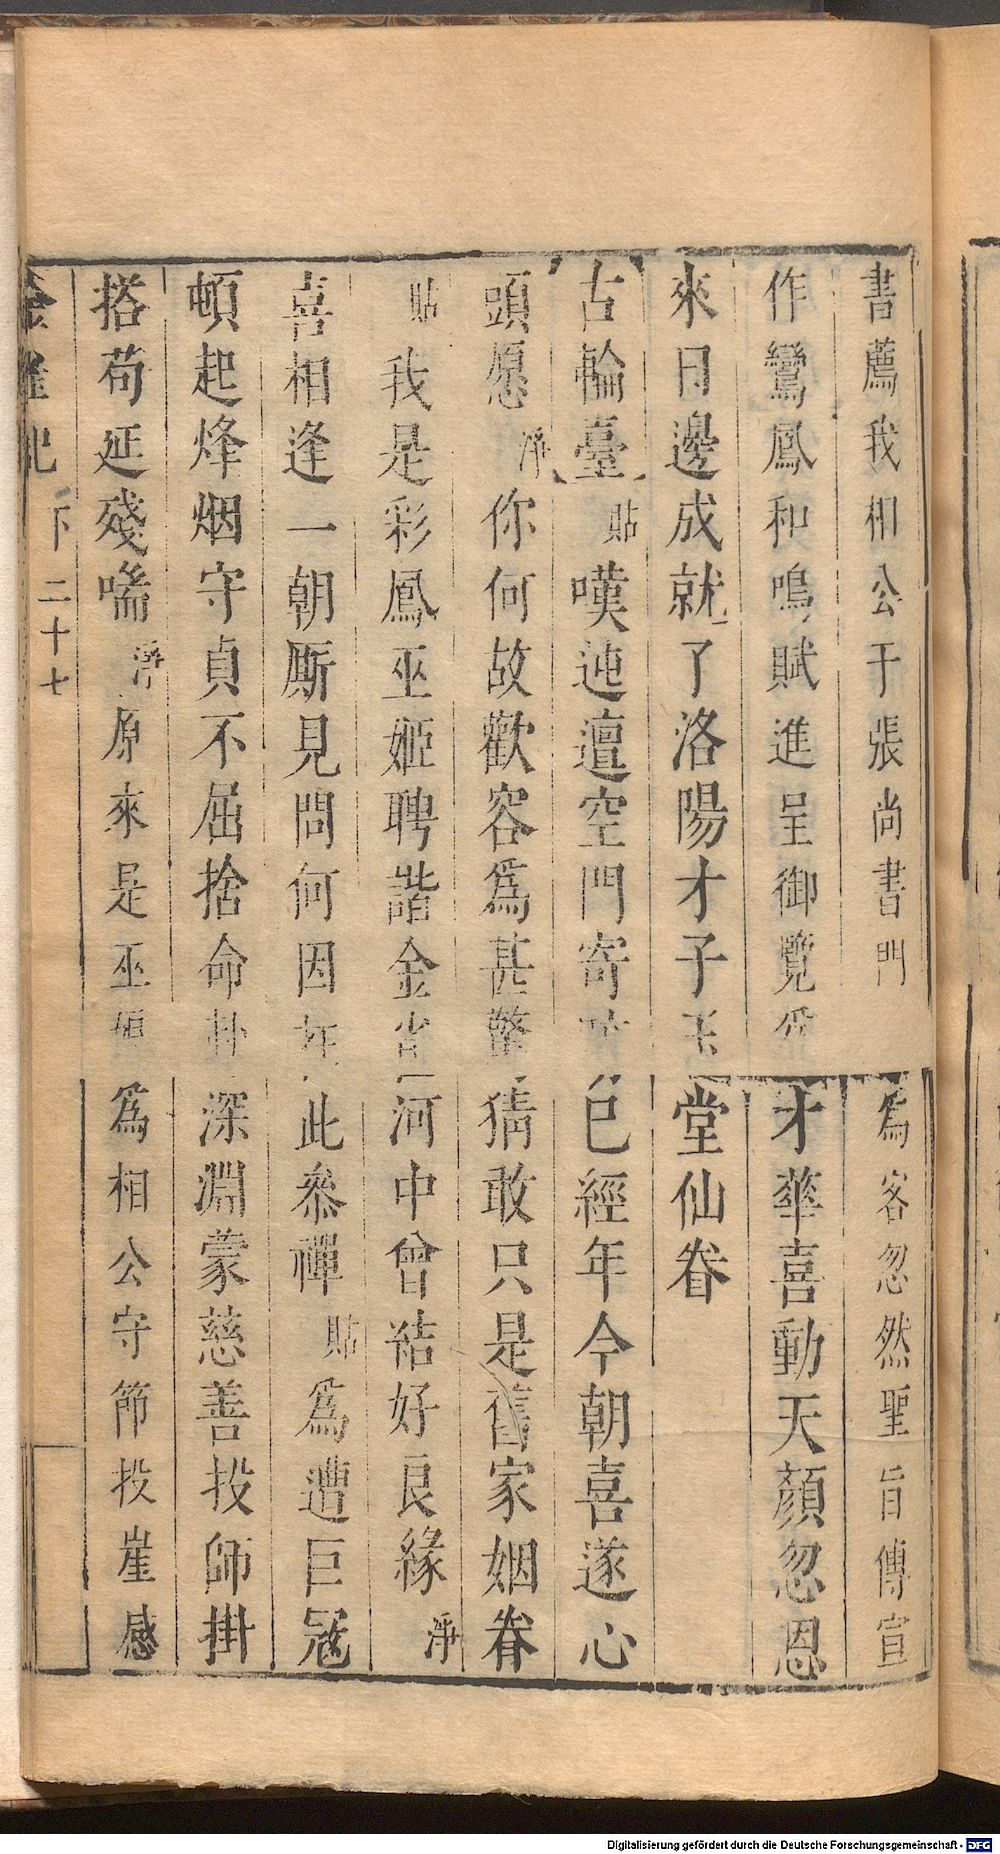 書薦我相公于張尚書門爲客忽然聖旨傳宣
作鸞鳳和鳴賦進呈御覽爲才華喜動天顏忽恩
來日邊成就了洛陽才子玉堂仙眷
【古輪臺】貼嘆迍邅空門寄已經年今朝喜遂心
頭愿淨你何故歡容爲甚驚猜敢只是舊家姻眷
貼我是彩鳳巫姬聘諧金河中曾結好良緣淨
喜相逢一朝厮見問何因在此叅禪貼爲遭巨冦
頓起烽烟守貞不屈捨命深淵蒙慈善投師掛
搭苟延殘喘淨原來是巫姬爲相公守節投崖感
金雀記 下 二十七
Digitalisierung gefördert durch die Deutsche Forschungsgemeinschaft - DFG